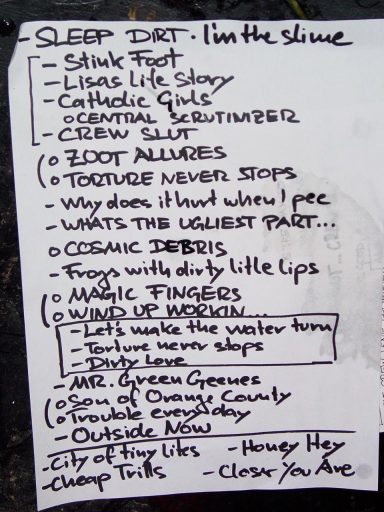 - SLEEP DIRT · I'm the slime
- Stink Foot
- Lisas Life Story
- Catholic Girls
o CENTRAL SCRUTINIZER
- CREW SLUT
o ZOOT ALLURES
o TORTURE NEVER STOPS
- Why does it hurt when I pee
- WHATS THE UGLIEST PART...
o COSMIC DEBRIS
- Frogs with dirty little lips
o MAGIC FINGERS
o WIND UP WORKIN...
- Let's make the water turn
- Torture never stops
- Dirty Love
- MR. Green Geenes
o Son of Orange County
o Trouble every day
- Outside Now
- City of tiny lites - Honey Hey
- Cheap Trills - Closer You Are